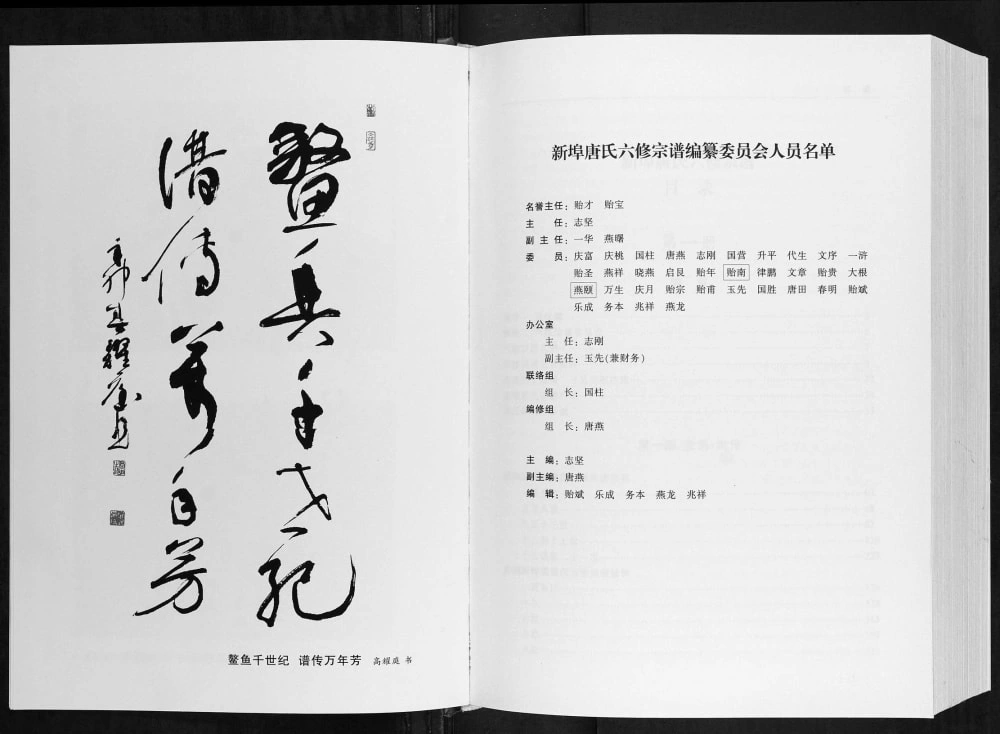 鳌鱼千世纪
谱传万年芳
鳌鱼千世纪 谱传万年芳 高耀庭 书
新埠唐氏六修宗谱编纂委员会人员名单
名誉主任：贻才 贻宝
主 任：志坚
副 主 任：一华 燕曙
委 员：庆富 庆桃 国柱 唐燕 志刚 国营 升平 代生 文序 一浒
贻圣 燕祥 晓燕 启艮 贻年 贻南 律鹏 文章 贻贵 大根
燕颐 万生 庆月 贻宗 贻甫 玉先 国胜 唐田 春明 贻斌
乐成 务本 兆祥 燕龙
办公室
主 任：志刚
副主任：玉先(兼财务)
联络组
组 长：国柱
编修组
组 长：唐燕
主 编：志坚
副主编：唐燕
编 辑：贻斌 乐成 务本 燕龙 兆祥